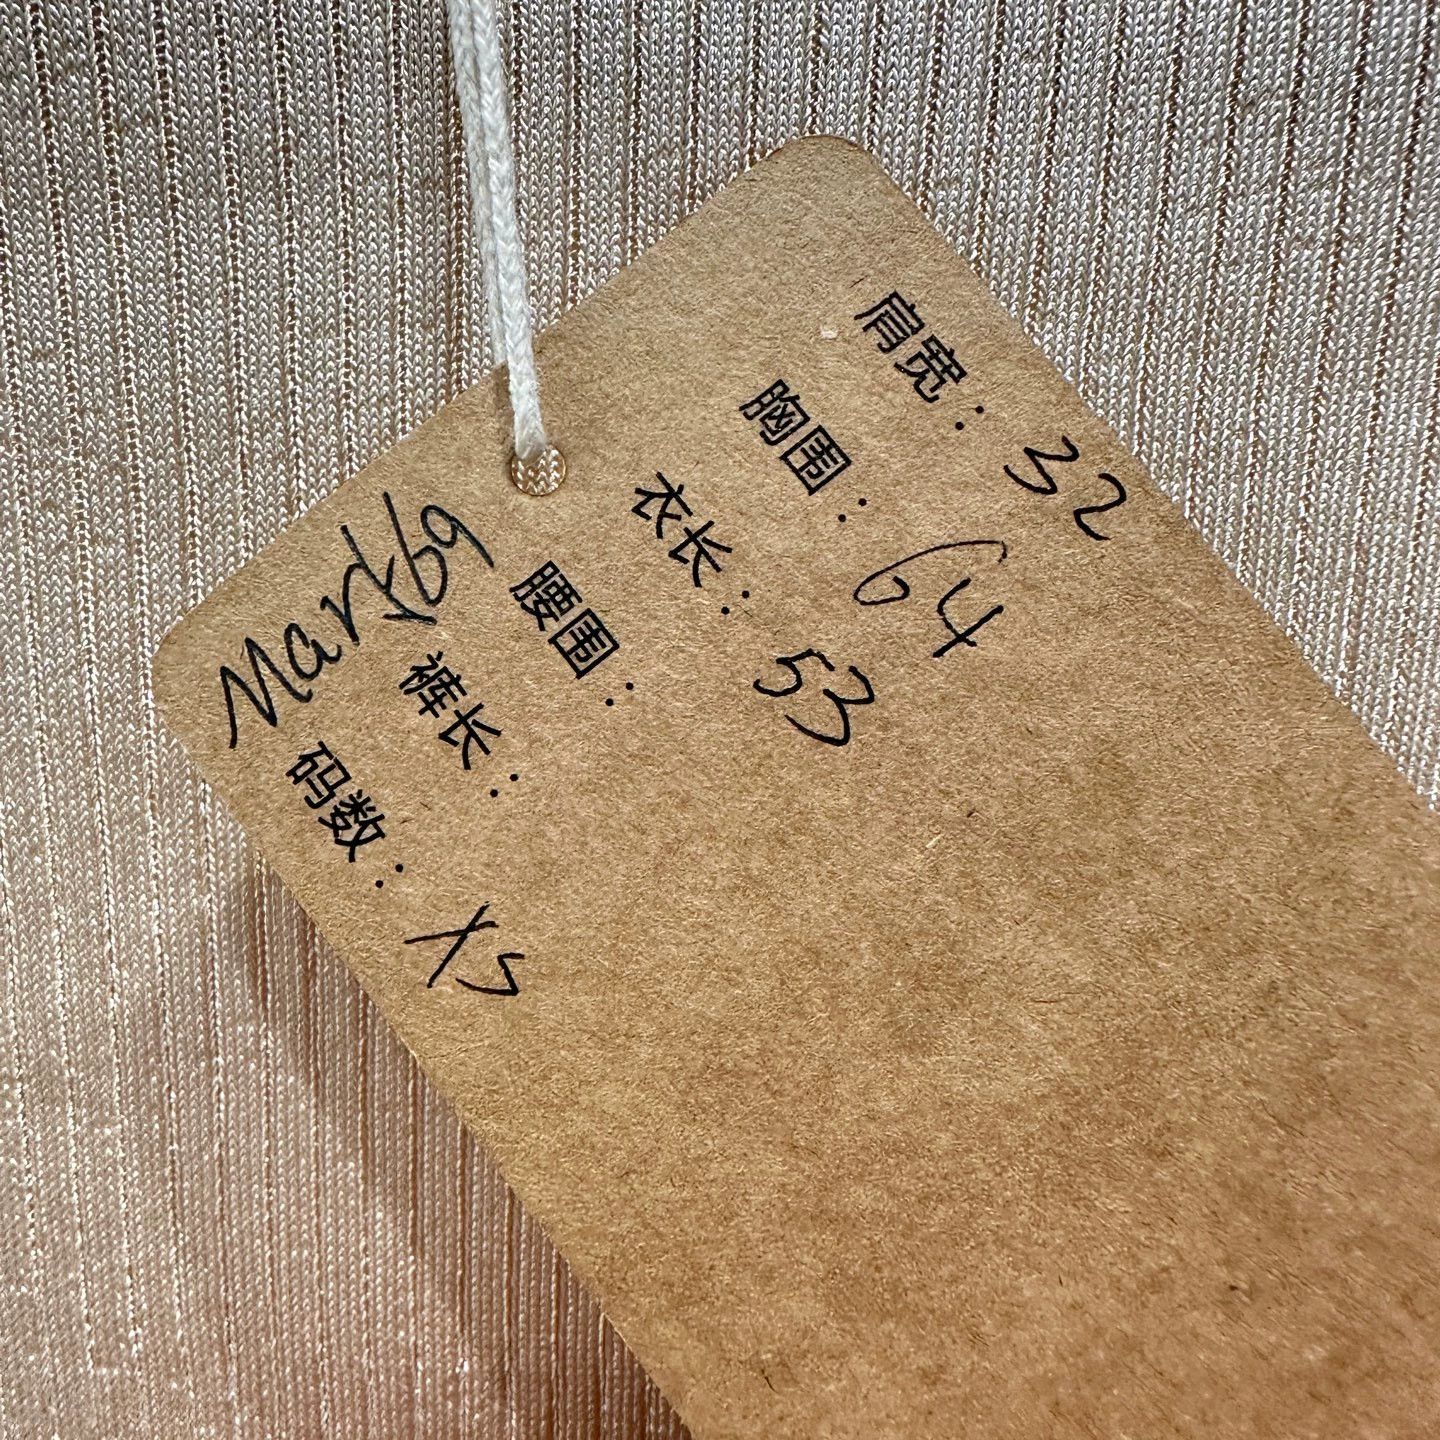 肩宽：32
胸围：64
衣长：53
腰围：
裤长：
码数：XS
Mark69